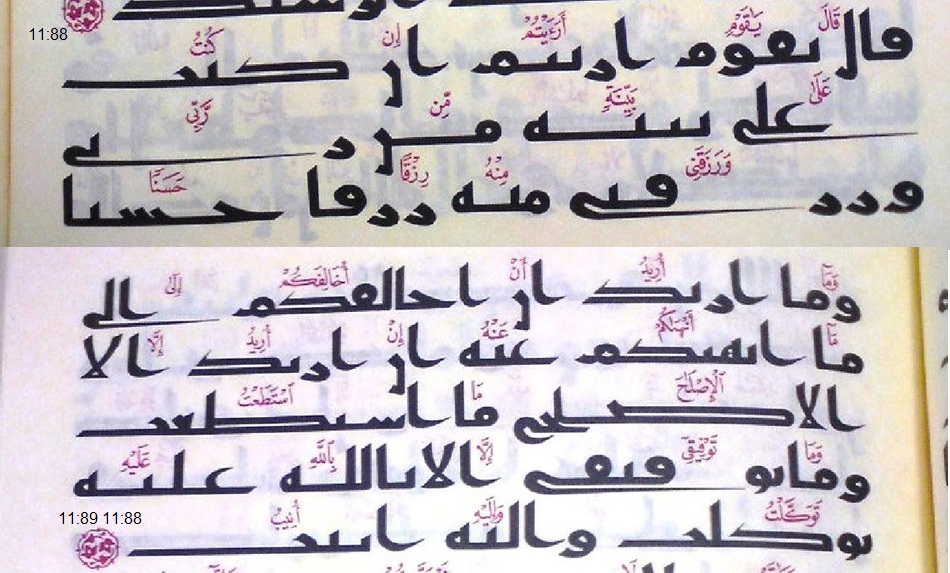 11:88
قَالَ يَٰقَوْمِ أَرَءَيْتُمْ إِن كُنتُ
قال يقوم اريتم ان كنت
عَلَىٰ بَيِّنَةٍ مِّن رَّبِّى
على بينه من ربى
وَرَزَقَنِى مِنْهُ رِزْقًا حَسَنًا
ورزقنى منه رزقا حسنا
وَمَآ أُرِيدُ أَنْ أُخَالِفَكُمْ إِلَىٰ
وما اريد ان اخالفكم الى
مَآ أَنْهَىٰكُمْ عَنْهُ إِنْ أُرِيدُ إِلَّا
ما انهيكم عنه ان اريد الا
ٱلْإِصْلَٰحَ مَا ٱسْتَطَعْتُ
الاصلح ما استطعت
وَمَا تَوْفِيقِىٓ إِلَّا بِٱللَّهِ عَلَيْهِ
وما توفيقى الا بالله عليه
11:89 11:88
تَوَكَّلْتُ وَإِلَيْهِ أُنِيبُ
توكلت واليه انيب